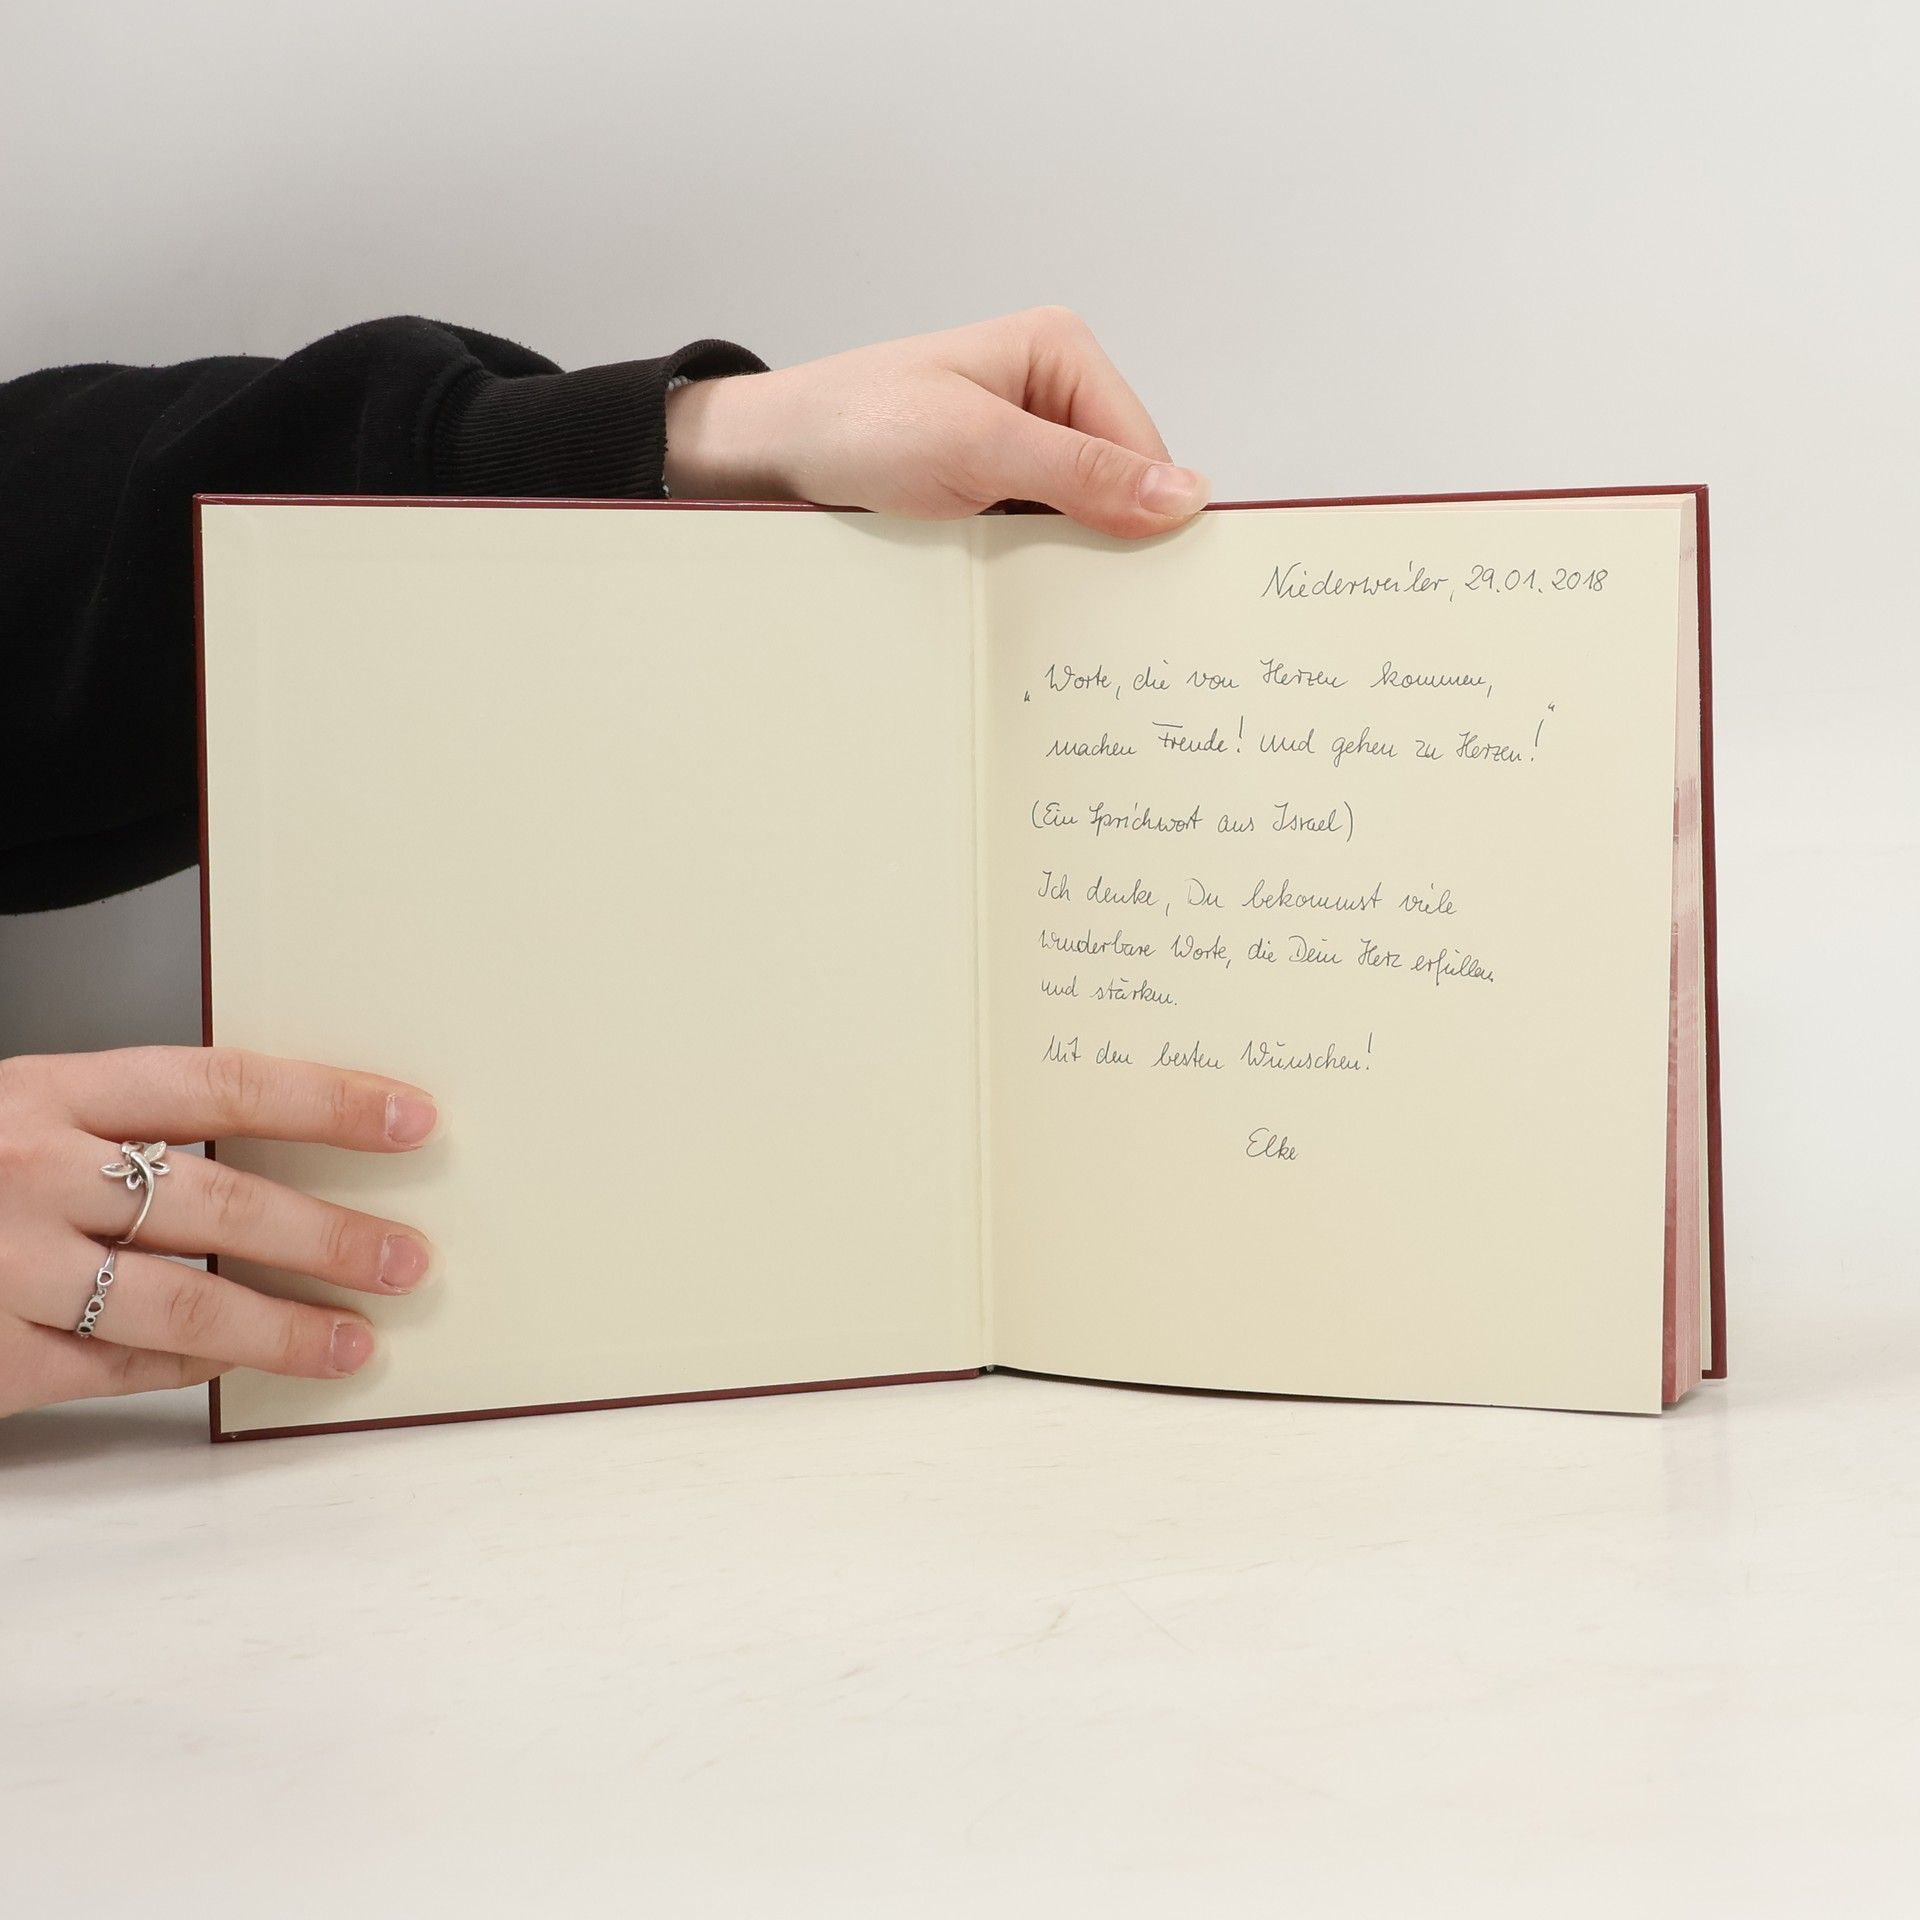 Niederweiler, 29.01.2018
„Worte, die von Herzen kommen,
machen Freude! Und gehen zu Herzen!“
(Ein Sprichwort aus Israel)
Ich denke, Du bekommst viele
wunderbare Worte, die Dein Herz erfüllen
und stärken.
Mit den besten Wünschen!
Elke